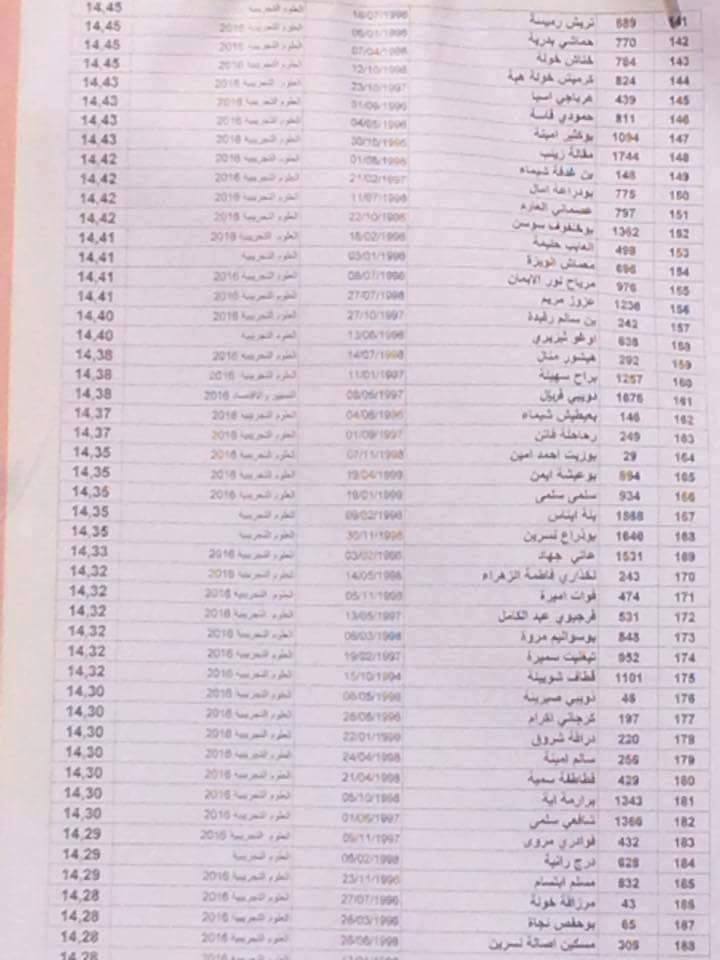 141 689 تريش رميسة 16/07/1996 العلوم التجريبية 14,45
142 770 حماشي بدرية 06/01/1996 العلوم التجريبية 2016 14,45
143 784 خناش خولة 07/04/1998 العلوم التجريبية 2016 14,45
144 824 كرميش خولة هبة 12/10/1998 العلوم التجريبية 14,45
145 439 عرباجي اسيا 23/10/1997 العلوم التجريبية 2016 14,43
146 811 حمودي قاسة 31/08/1996 العلوم التجريبية 2016 14,43
147 1094 بوكثير امينة 04/05/1996 العلوم التجريبية 2016 14,43
148 1744 مقالة زينب 30/10/1996 العلوم التجريبية 2016 14,43
149 148 بن غدفة شيماء 01/08/1996 العلوم التجريبية 2016 14,42
150 775 بودراعة امال 21/02/1997 العلوم التجريبية 2016 14,42
151 797 عصماني العارم 11/07/1998 العلوم التجريبية 2016 14,42
152 1362 بوخنفوف سوسن 22/10/1996 العلوم التجريبية 2016 14,42
153 498 العايب حليمة 18/02/1996 العلوم التجريبية 2016 14,41
154 696 معماش الويزة 03/01/1996 العلوم التجريبية 14,41
155 976 مرباح نور الايمان 08/07/1996 العلوم التجريبية 2016 14,41
156 1236 عزوز مريم 27/07/1998 العلوم التجريبية 2016 14,41
157 242 بن سالم رفيدة 27/10/1997 العلوم التجريبية 2016 14,40
158 638 اوغو ثيزيري 13/06/1998 العلوم التجريبية 14,40
159 292 هيشور منال 14/07/1998 العلوم التجريبية 2016 14,38
160 1257 براح سهيلة 11/01/1997 العلوم التجريبية 2016 14,38
161 1676 دويبي فريال 08/06/1997 التسيير والاقتصاد 2016 14,38
162 146 بعيطيش شيماء 04/06/1996 العلوم التجريبية 2016 14,37
163 249 رحاحلة فاتن 01/09/1997 العلوم التجريبية 2016 14,37
164 29 بوزيت احمد امين 07/11/1998 العلوم التجريبية 2016 14,35
165 894 بوعيشة ايمن 19/04/1999 العلوم التجريبية 14,35
166 934 سلمى سلمى 18/01/1999 العلوم التجريبية 2016 14,35
167 1868 بلة ايناس 09/02/1998 العلوم التجريبية 14,35
168 1646 بوذراع نسرين 30/11/1998 العلوم التجريبية 14,35
169 1531 عاتي جهاد 03/02/1996 العلوم التجريبية 2016 14,33
170 243 لخذاري فاطمة الزهراء 14/05/1998 العلوم التجريبية 2016 14,32
171 474 قوات اميرة 05/11/1998 العلوم التجريبية 2016 14,32
172 531 قرجيوي عبد الكامل 13/05/1997 العلوم التجريبية 2016 14,32
173 848 بوسواليم مروة 06/03/1998 العلوم التجريبية 2016 14,32
174 952 تيغليت سميرة 19/02/1997 العلوم التجريبية 2016 14,32
175 1101 قطاف شوبينة 15/10/1994 العلوم التجريبية 2016 14,32
176 48 ذويبي صبرينة 08/05/1998 العلوم التجريبية 2016 14,30
177 197 كرجاني اكرام 28/08/1996 العلوم التجريبية 2016 14,30
178 220 درافة شروق 22/01/1999 العلوم التجريبية 2016 14,30
179 256 سالم امينة 24/04/1998 العلوم التجريبية 2016 14,30
180 429 قطاطفة سمية 21/04/1998 العلوم التجريبية 2016 14,30
181 1343 برارمة اية 05/10/1998 العلوم التجريبية 2016 14,30
182 1366 شافعي سلمى 01/06/1997 العلوم التجريبية 2016 14,30
183 432 قوادري مروى 05/11/1997 العلوم التجريبية 2016 14,29
184 628 درج رانية 06/02/1998 العلوم التجريبية 14,29
185 832 مسلم ابتسام 23/11/1996 العلوم التجريبية 2016 14,29
186 43 مرزاقة خولة 27/07/1996 العلوم التجريبية 2016 14,28
187 65 بوحفص نجاة 26/03/1996 العلوم التجريبية 2016 14,28
188 309 مسكين اصالة نسرين 26/06/1998 العلوم التجريبية 2016 14,28
14,28